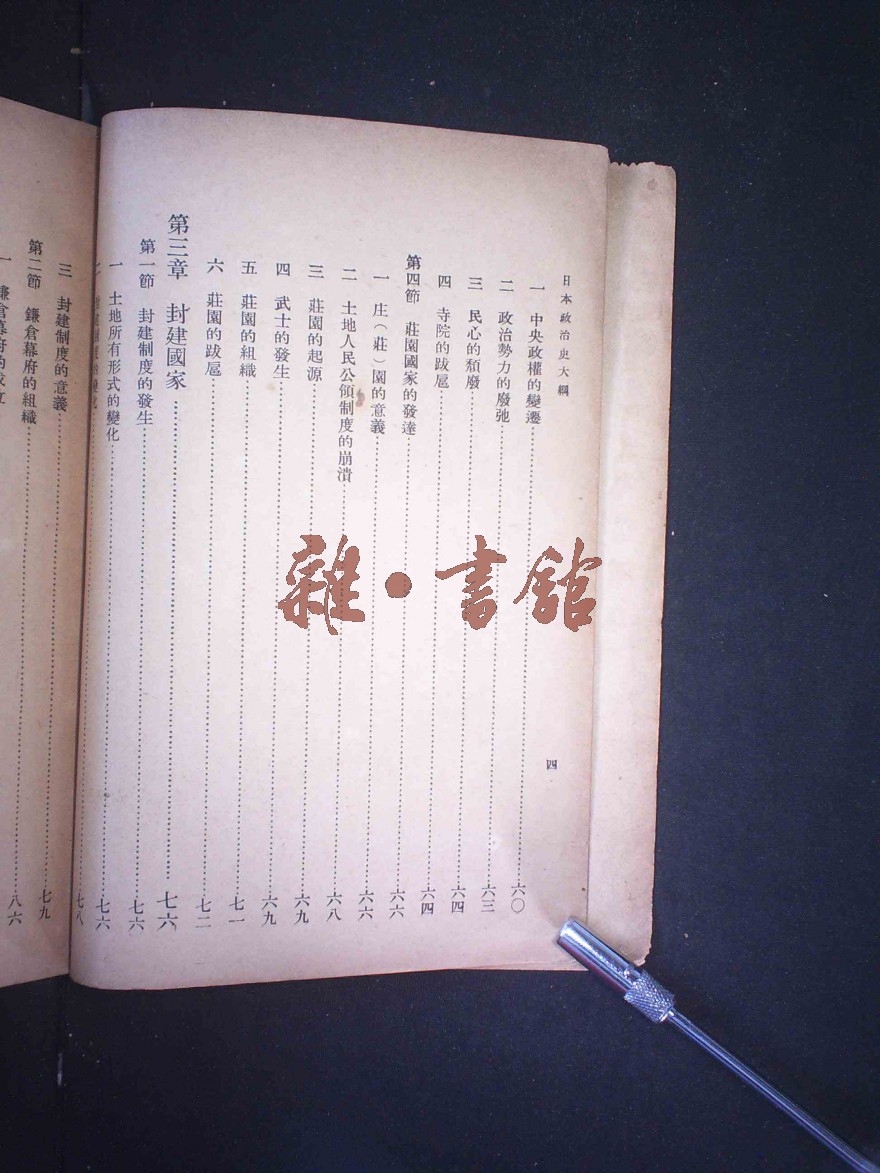 日本政治史大綱
一　中央政權的變遷……六〇
二　政治勢力的廢弛……六三
三　民心的頹廢……六四
四　寺院的跋扈……六四
第四節　莊園國家的發達……六六
一　庄（莊）園的意義……六六
二　土地人民公領制度的崩潰……六八
三　莊園的起源……六九
四　武士的發生……六九
五　莊園的組織……七一
六　莊園的跋扈……七二
第三章　封建國家……七六
第一節　封建制度的發生……七六
一　土地所有形式的變化……七六
二　……七八
四
三　封建制度的意義……七九
第二節　鎌倉幕府的組織……八六
一　鎌倉幕府的成立
雜·書館